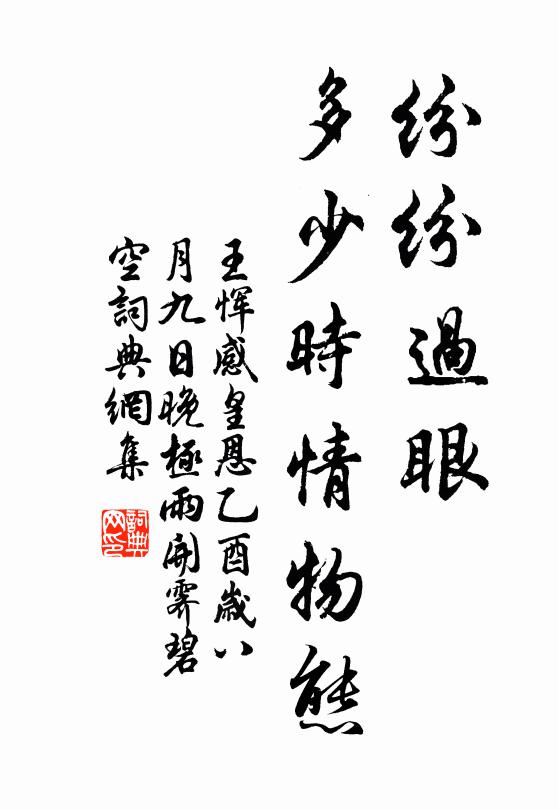 紛紛過眼
多少時情物態
王惲感皇恩乙酉歲八
月九日晚極雨開霽碧
空詞典網集
詞典
网印